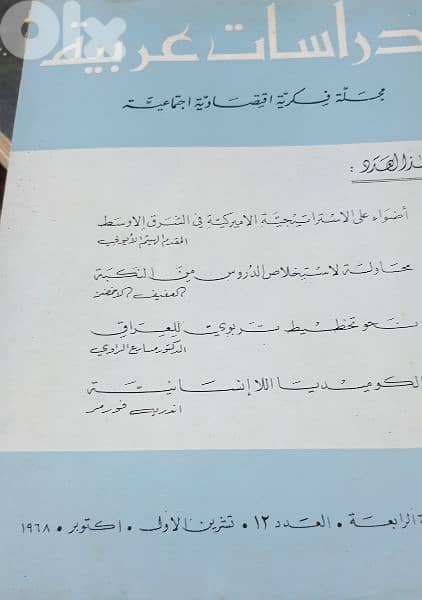 olx
دراسات عربية
مجلة فكرية اقتصادية اجتماعية
هذا العدد :
أضواء على الاستراتيجية الاميركية في الشرق الاوسط
المقدم الهيثم الأيوبي
محاولة لاستخلاص الدروس من النكبة
العفيف الاخضر
نحو تخطيط تربوي للعراق
الدكتور مسارع الراوي
الكوميديا اللاإنسانية
اندريه فورمر
الرابعة • العدد ١٢ • تشرين الاول • اكتوبر • ١٩٦٨